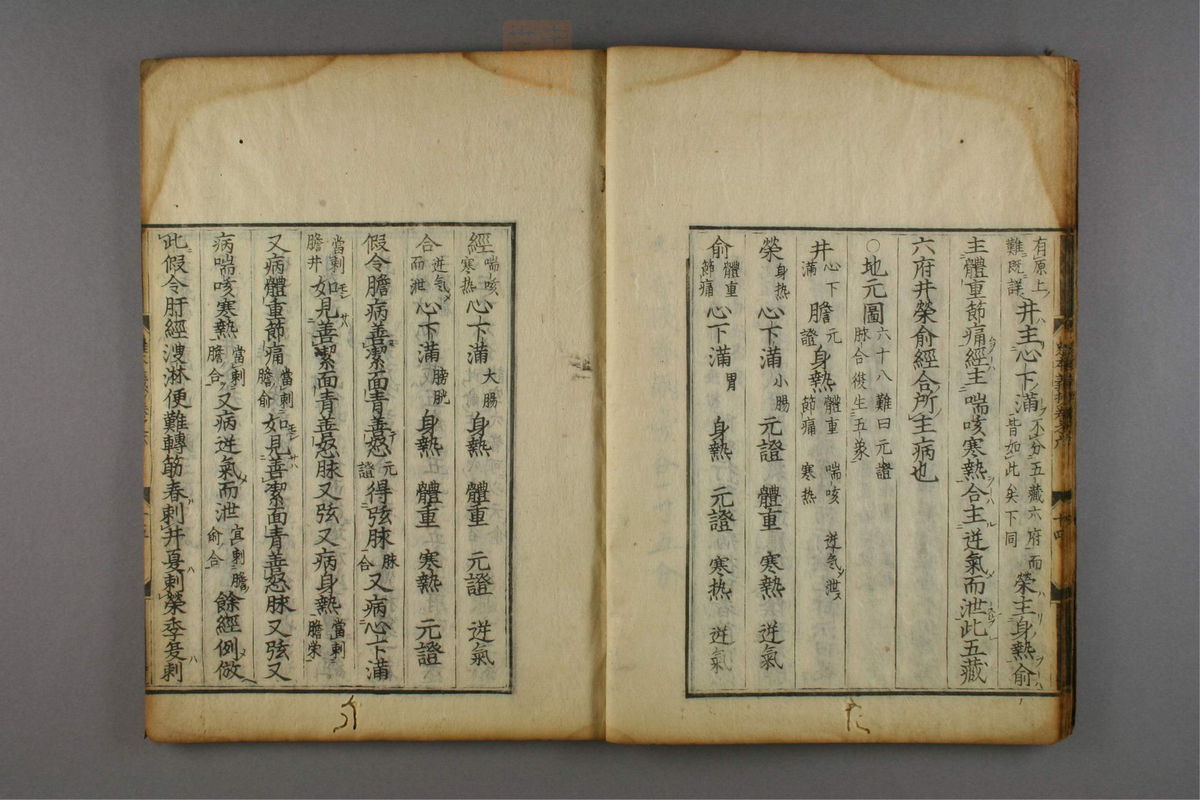 有原上難既詳井主心下滿不分五藏六府而皆如此矣下同榮主身熱俞
主體重節痛經主喘咳寒熱合主逆氣而泄此五藏
六府井榮俞經合所主病也
○地元圖六十八難曰元證脉合從生五象
井心下滿膽元證身熱體重節痛喘咳寒熱逆氣泄
榮身热心下滿小腸元證體重寒熱逆氣
俞體重節痛心下滿胃身熱元證寒热逆氣
經喘咳寒熱心下滿大腸身熱體重元證逆氣
合逆氣而泄心下滿膀胱身熱體重寒熱元證
假令膽病善潔面青善怒元證得弦脉脉合又病心下滿
當刺膽井如見善潔面青善怒脉又弦又病身熱當刺膽榮
又病體重節痛當刺膽俞如見善潔面青善怒脉又弦又
病喘咳寒熱當刺膽合又病逆氣而泄宜刺膽俞合餘經例倣
此假令肝經溲淋便難轉筋春刺井夏刺榮季夏刺
十四